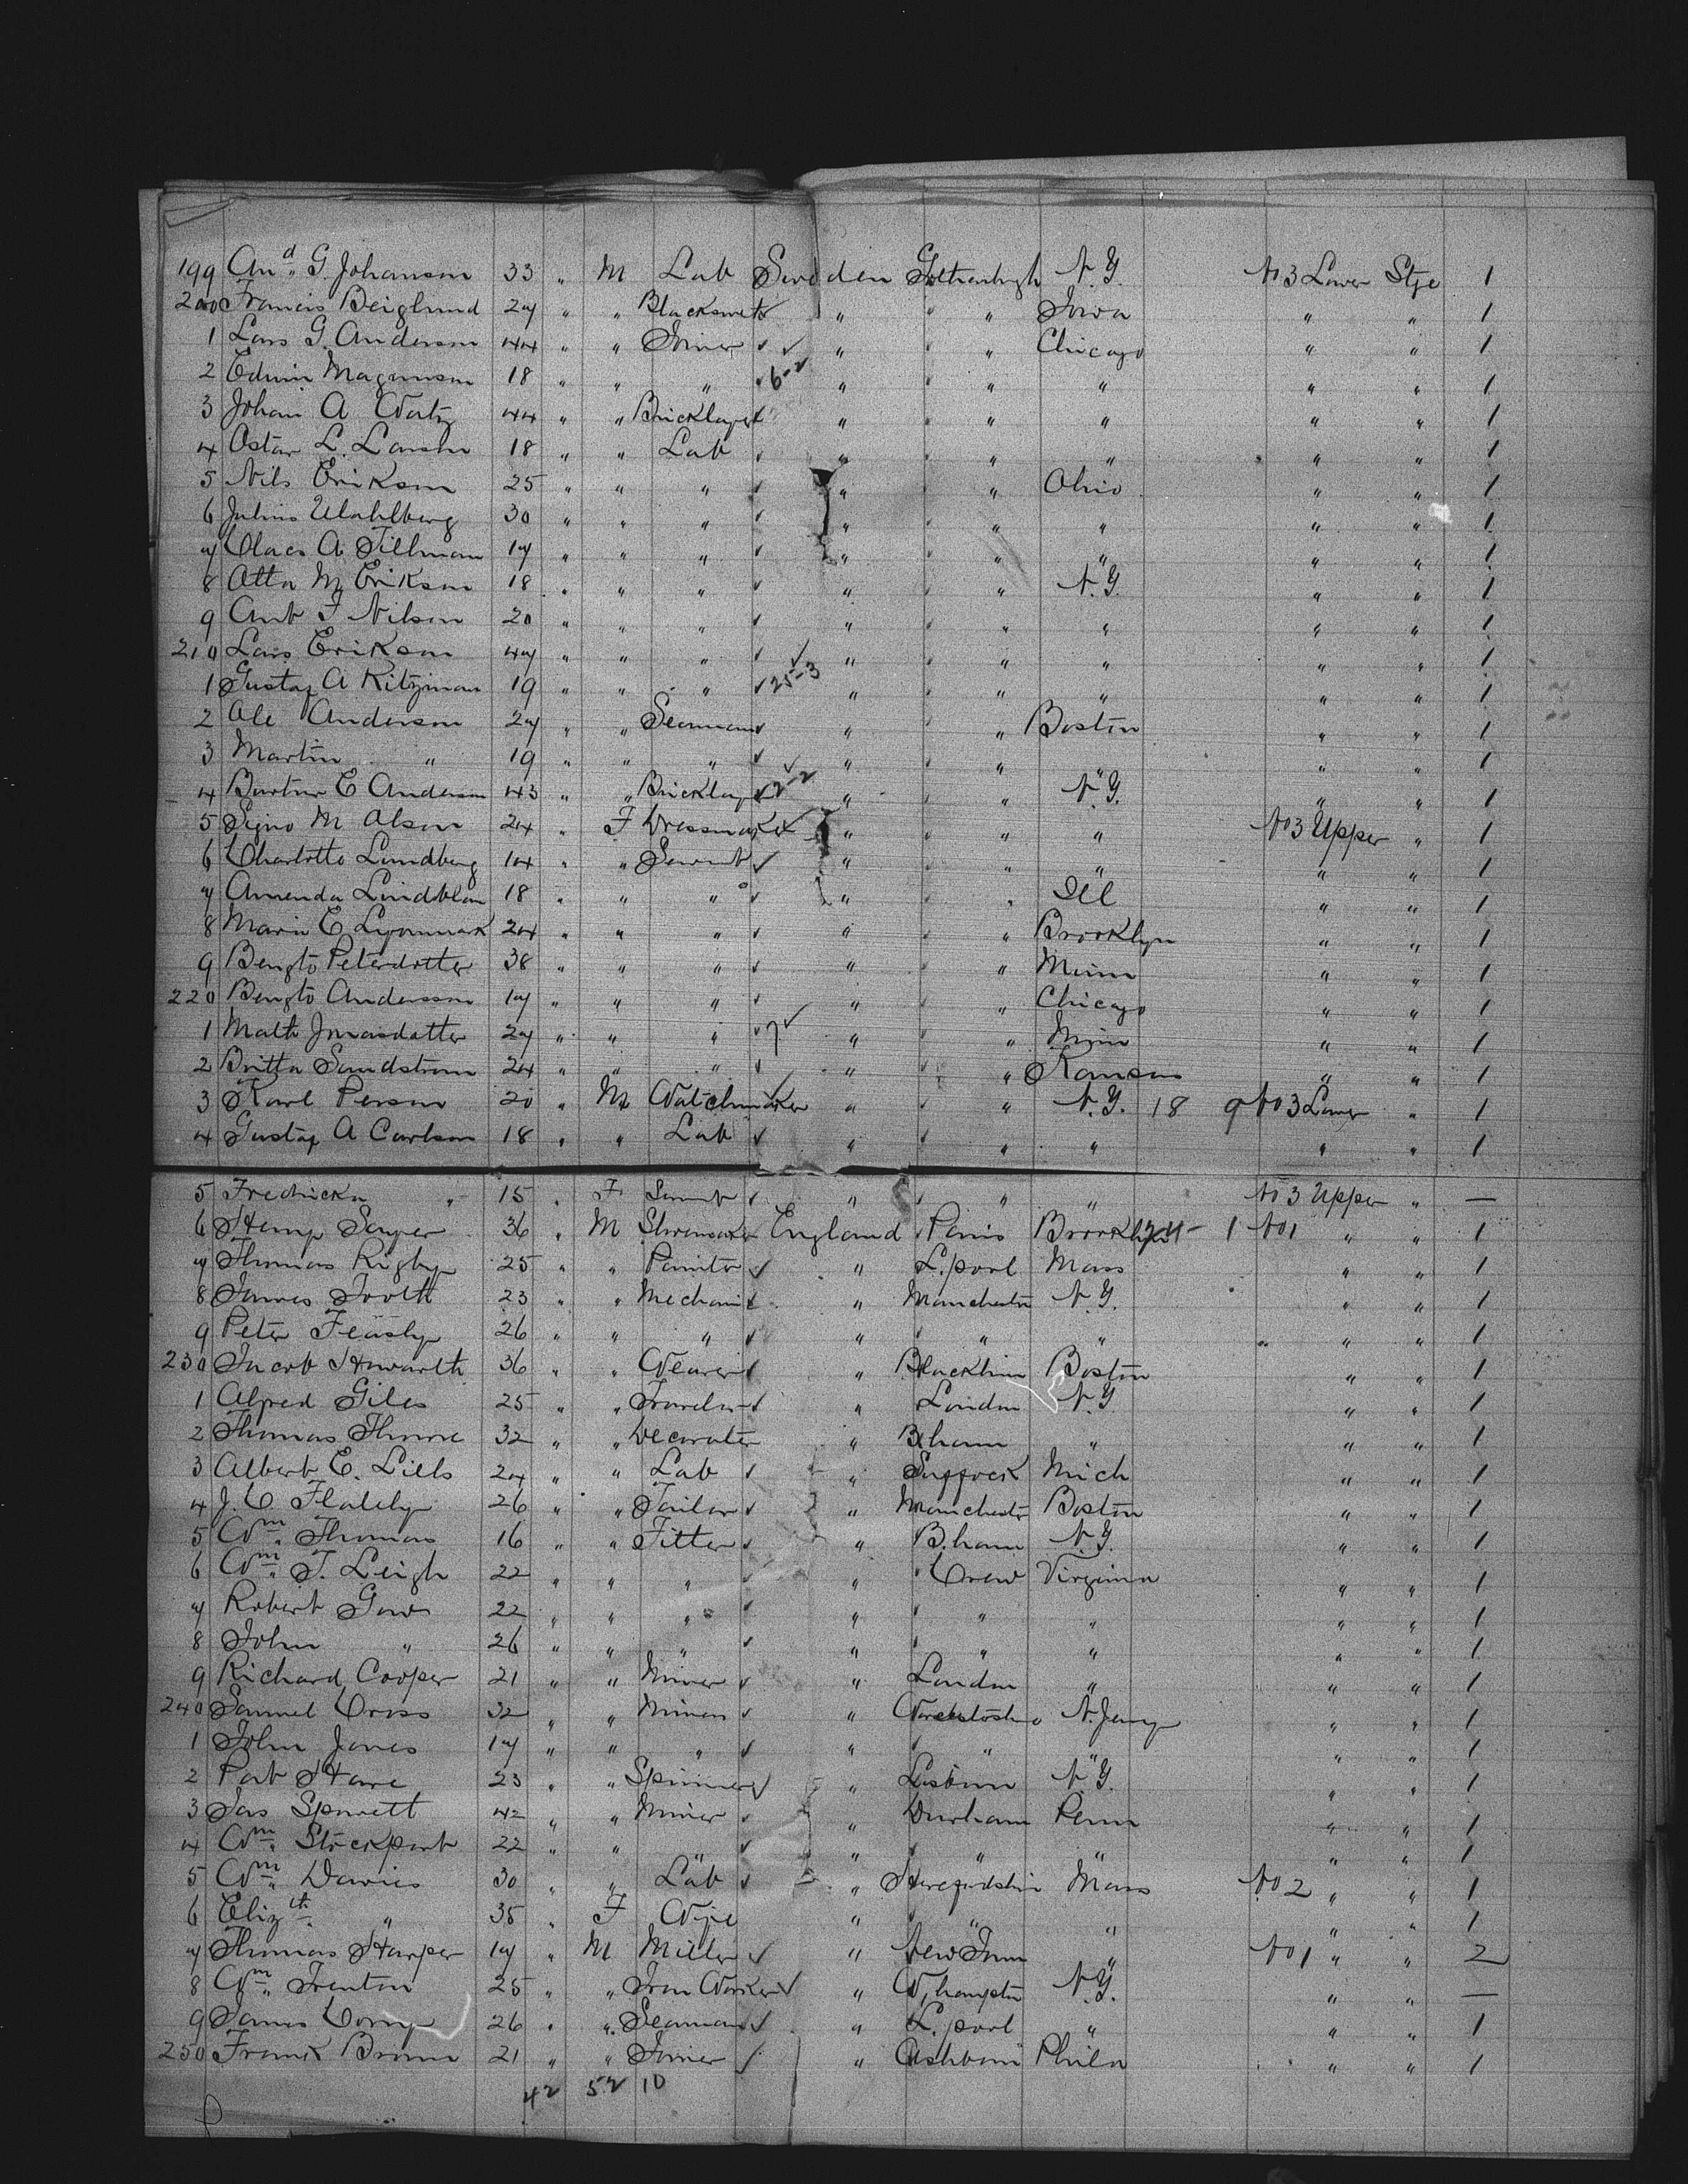 199 And. G. Johanson 33 " M Lab Sweden Gothenburgh N.Y. No 3 Lower Stge 1
200 Francis Beiglund 27 " " Blacksmith " " Iowa " " 1
1 Lars G. Anderson 44 " " Joiner " " Chicago " " 1
2 Edwin Magnuson 18 " " " 6-2 " " " " " 1
3 Johan A Watz 44 " " Bricklayer " " " " " 1
4 Oskar L. Larson 18 " " Lab " " " " " 1
5 Nils Erikson 25 " " " " " Ohio " " 1
6 Julius Wahlberg 30 " " " " " " " " 1
7 Claes A Tillman 17 " " " " " " " " 1
8 Otto M Erikson 18 " " " " " N.Y. " " 1
9 Ant F Nilson 20 " " " " " " " " 1
210 Lars Erikson 47 " " " " " " " " 1
1 Gustaf A Kitzman 19 " " " 25-3 " " " " " 1
2 Ole Anderson 27 " " Seaman " " Boston " " 1
3 Martin " 19 " " " " " " " " 1
4 E Anderson 43 " " Bricklayer 2-2 " " N.Y. " " 1
5 M Olson 24 " F Dressmaker " " " No 3 Upper " 1
6 Charlotte Lundberg 14 " " Servnt " " " " " 1
7 Amenda Lindblom 18 " " " " " Ill " " 1
8 Maria E 24 " " " " " Brooklyn " " 1
9 Bengto Peterdotter 38 " " " " " Minn " " 1
220 Bengto Anderson 17 " " " " " Chicago " " 1
1 Math Jonasdotter 27 " " " 7 " " Minn " " 1
2 Britta Sandstrom 24 " " " " " Kansas " " 1
3 Karl Person 20 " M Watchmaker " " N.Y. 18 9 No 3 Lower " 1
4 Gustaf A Carlson 18 " " Lab " " " " " 1
5 Fredricka " 15 " F Servnt " " " No 3 Upper " —
6 Henry Sayer 36 " M Shoemaker England Paris Brooklyn 1 No 1 " " 1
7 Thomas Rigby 25 " " Painter " L.pool Mass " " 1
8 James Tooth 23 " " Mechanic " Manchester N.Y. " " 1
9 Peter 26 " " " " " " " " 1
230 Jacob Howarth 36 " " Weaver " Boston " " 1
1 Alfred Giles 25 " " " London N.Y. " " 1
2 Thomas 32 " " Decorater " B.ham " " " 1
3 Albert E. Lills 24 " " Lab " Suffock Mich " " 1
4 J. C. Flately 26 " " Tailor " Manchester Boston " " 1
5 Wm. Thomas 16 " " Fitter " B.ham N.Y. " " 1
6 Wm. T. Leigh 22 " " " " Crew Virginia " " 1
7 Robert 22 " " " " " " " " 1
8 John " 26 " " " " " " " " 1
9 Richard Cooper 21 " " Miner " London " " " 1
240 Samuel Cross 32 " " " N. Jersey " " 1
1 John Jones 17 " " " " " " " " 1
2 Pat Hare 23 " " Spinner " N.Y. " " 1
3 Jas 42 " " Miner " Durham Penn " " 1
4 Wm. Stockport 22 " " " " " " " " 1
5 Wm. Davies 30 " " Lab " Herefordshire Mass No 2 " " 1
6 Elizth. " 35 " F Wife " " " " " 1
7 Thomas Harper 17 " M Miller " " No 1 " " 2
8 Wm. Trenton 25 " " Iron Worker " W.hampton N.Y. " " —
9 James 26 " " Seaman " L.pool " " " 1
250 Frank Brown 21 " " Joiner " Phila " " 1
42 52 10